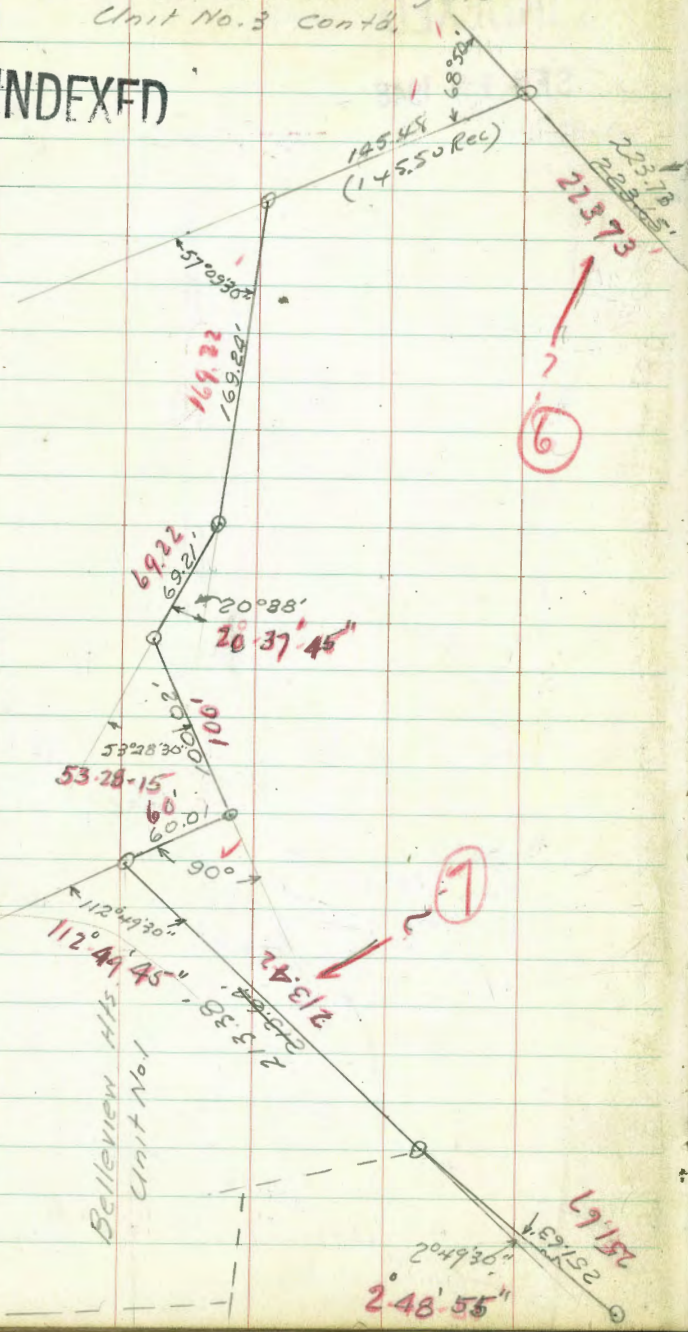 Unit No. 3 contd.
INDEXED
68°50'
145.48
(145.50 Rec)
223.73
223.65'
223.73
57°09'30"
169.22
169.24'
?
6
69.22
69.21'
20°38'
20-37'-45"
100.02'
100'
53°28'30"
53-28-15
60'
60.01'
90°
112°49'30"
112°49'45"
?
7
213.42
213.38'
Belleview Hts
Unit No.1
2°49'30"
2°48'55"
251.63'
251.67